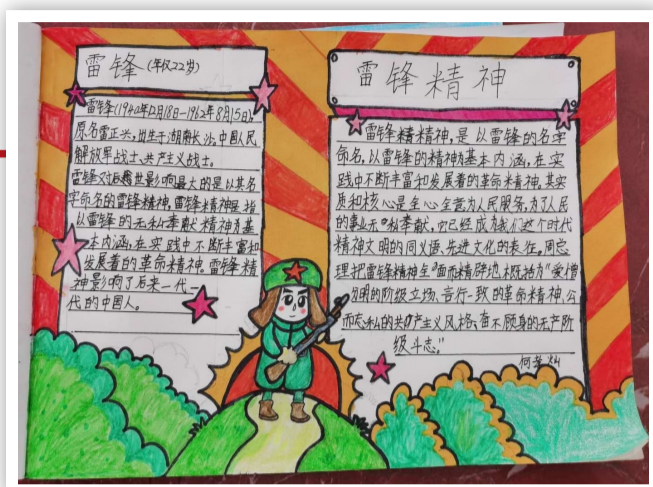 雷锋(年仅22岁)
雷锋(1940年12月18日-1962年8月15日),
原名雷正兴,出生于湖南长沙,中国人民
解放军战士、共产主义战士。
雷锋对后世影响最大的是以其名
字命名的雷锋精神,雷锋精神是指
以雷锋的无私奉献精神为基
本内涵,在实践中不断丰富和
发展着的革命精神。雷锋精
神影响了后来一代一
代的中国人。
雷锋精神
雷锋精精神,是以雷锋的名字
命名,以雷锋的精神为基本内涵,在实
践中不断丰富和发展着的革命精神。其实
质和核心是全心全意为人民服务,为了人民
的事业无私奉献,它已经成为我们这个时代
精神文明的同义语、先进文化的表征。周总
理把雷锋精神全面而精辟地概括为“爱憎
分明的阶级立场、言行一致的革命精神、公
而忘私的共产主义风格、奋不顾身的无产阶
级斗志。”